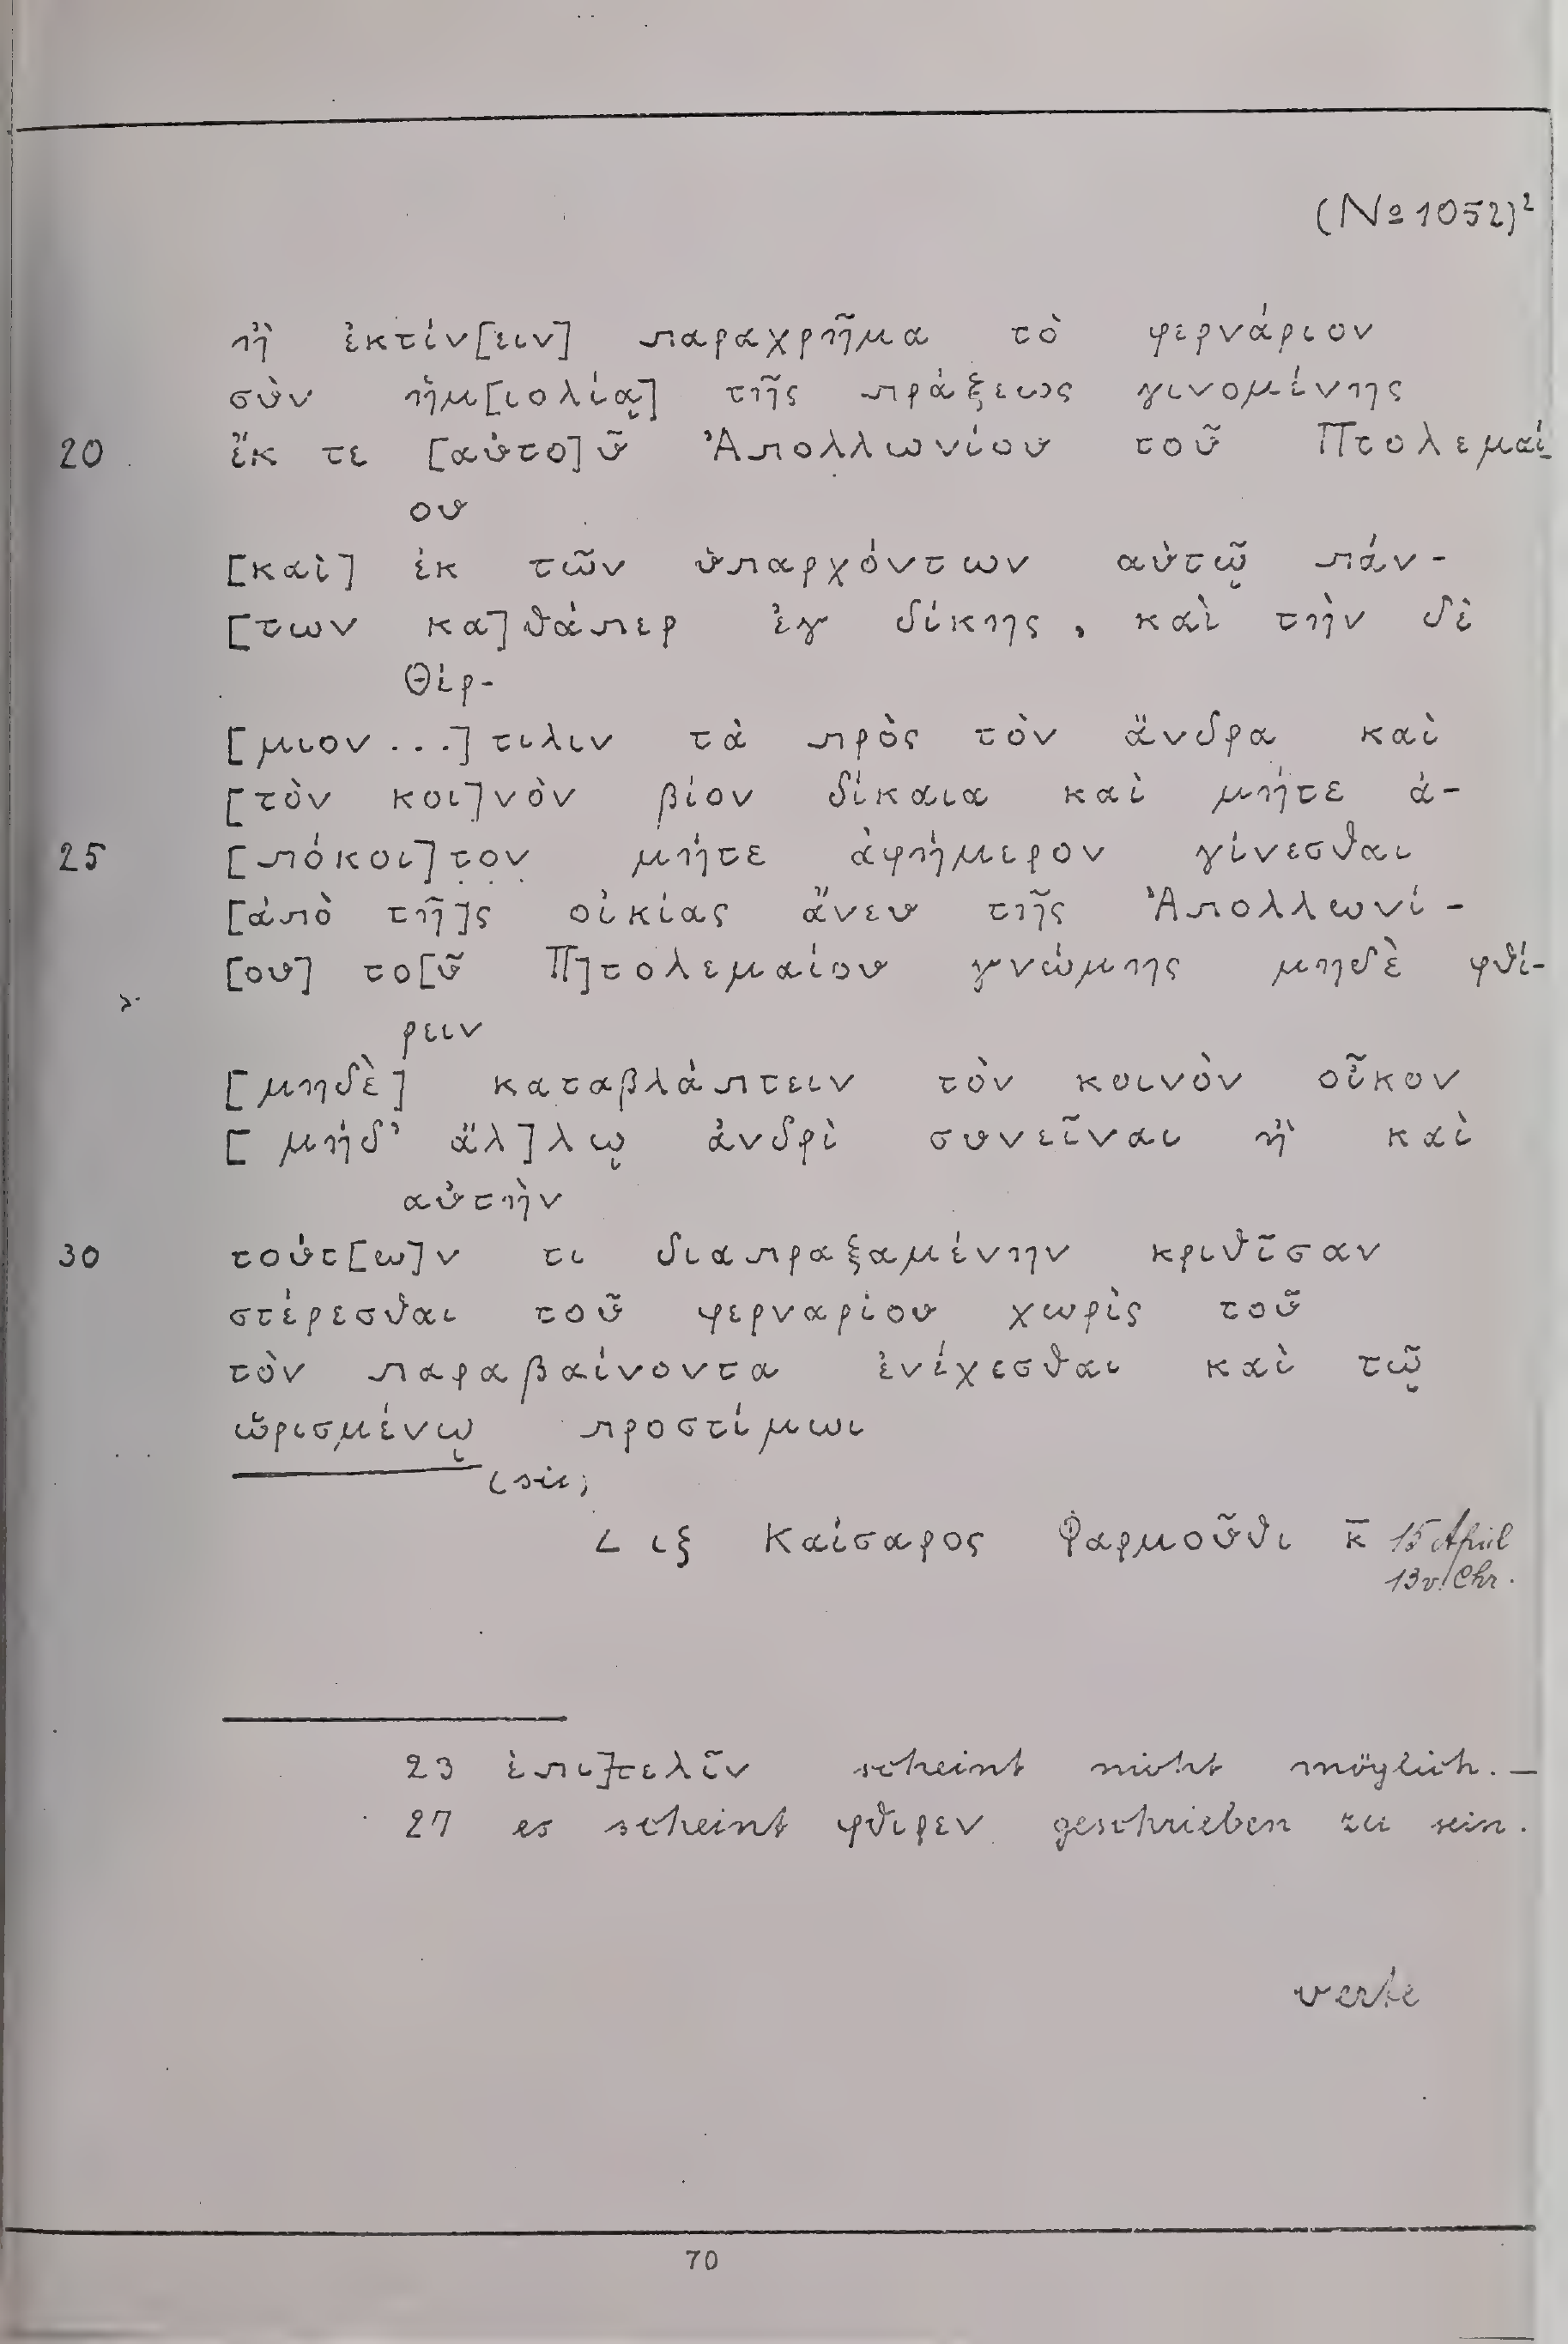 (№ 1052)²
ἢ ἐκτίν[ειν] παραχρῆμα τὸ φερνάριον
σὺν ἡμ[ιολίᾳ] τῆς πράξεως γινομένης
20 ἔκ τε [αὐτο]ῦ Ἀπολλωνίου τοῦ Πτολεμαί-
ου
[καὶ] ἐκ τῶν ὑπαρχόντων αὐτῷ πάν-
[των κα]θάπερ ἐγ δίκης, καὶ τὴν δὲ
Θέρ-
[μιον...]τιλιν τὰ πρὸς τὸν ἄνδρα καὶ
[τὸν κοι]νὸν βίον δίκαια καὶ μήτε ἀ-
25 [πόκοι]τον μήτε ἀφήμερον γίνεσθαι
[ἀπὸ τῆ]ς οἰκίας ἄνευ τῆς Ἀπολλωνί-
[ου] το[ῦ Π]τολεμαίου γνώμης μηδὲ φθί-
ρειν
[μηδὲ] καταβλάπτειν τὸν κοινὸν οἶκον
[μήδ' ἄλ]λῳ ἀνδρὶ συνεῖναι ἢ καὶ
αὐτὴν
30 τούτ[ω]ν τι διαπραξαμένην κριθῖσαν
στέρεσθαι τοῦ φερναρίου χωρὶς τοῦ
τὸν παραβαίνοντα ἐνέχεσθαι καὶ τῷ
ὡρισμένῳ προστίμωι
(sic)
L ιξ Καίσαρος Φαρμοῦθι κ̅ 15 April
13 v. Chr.
23 ἐπι]τελῖν scheint nicht möglich. —
27 es scheint φθιρεν geschrieben zu sein.
verte
70